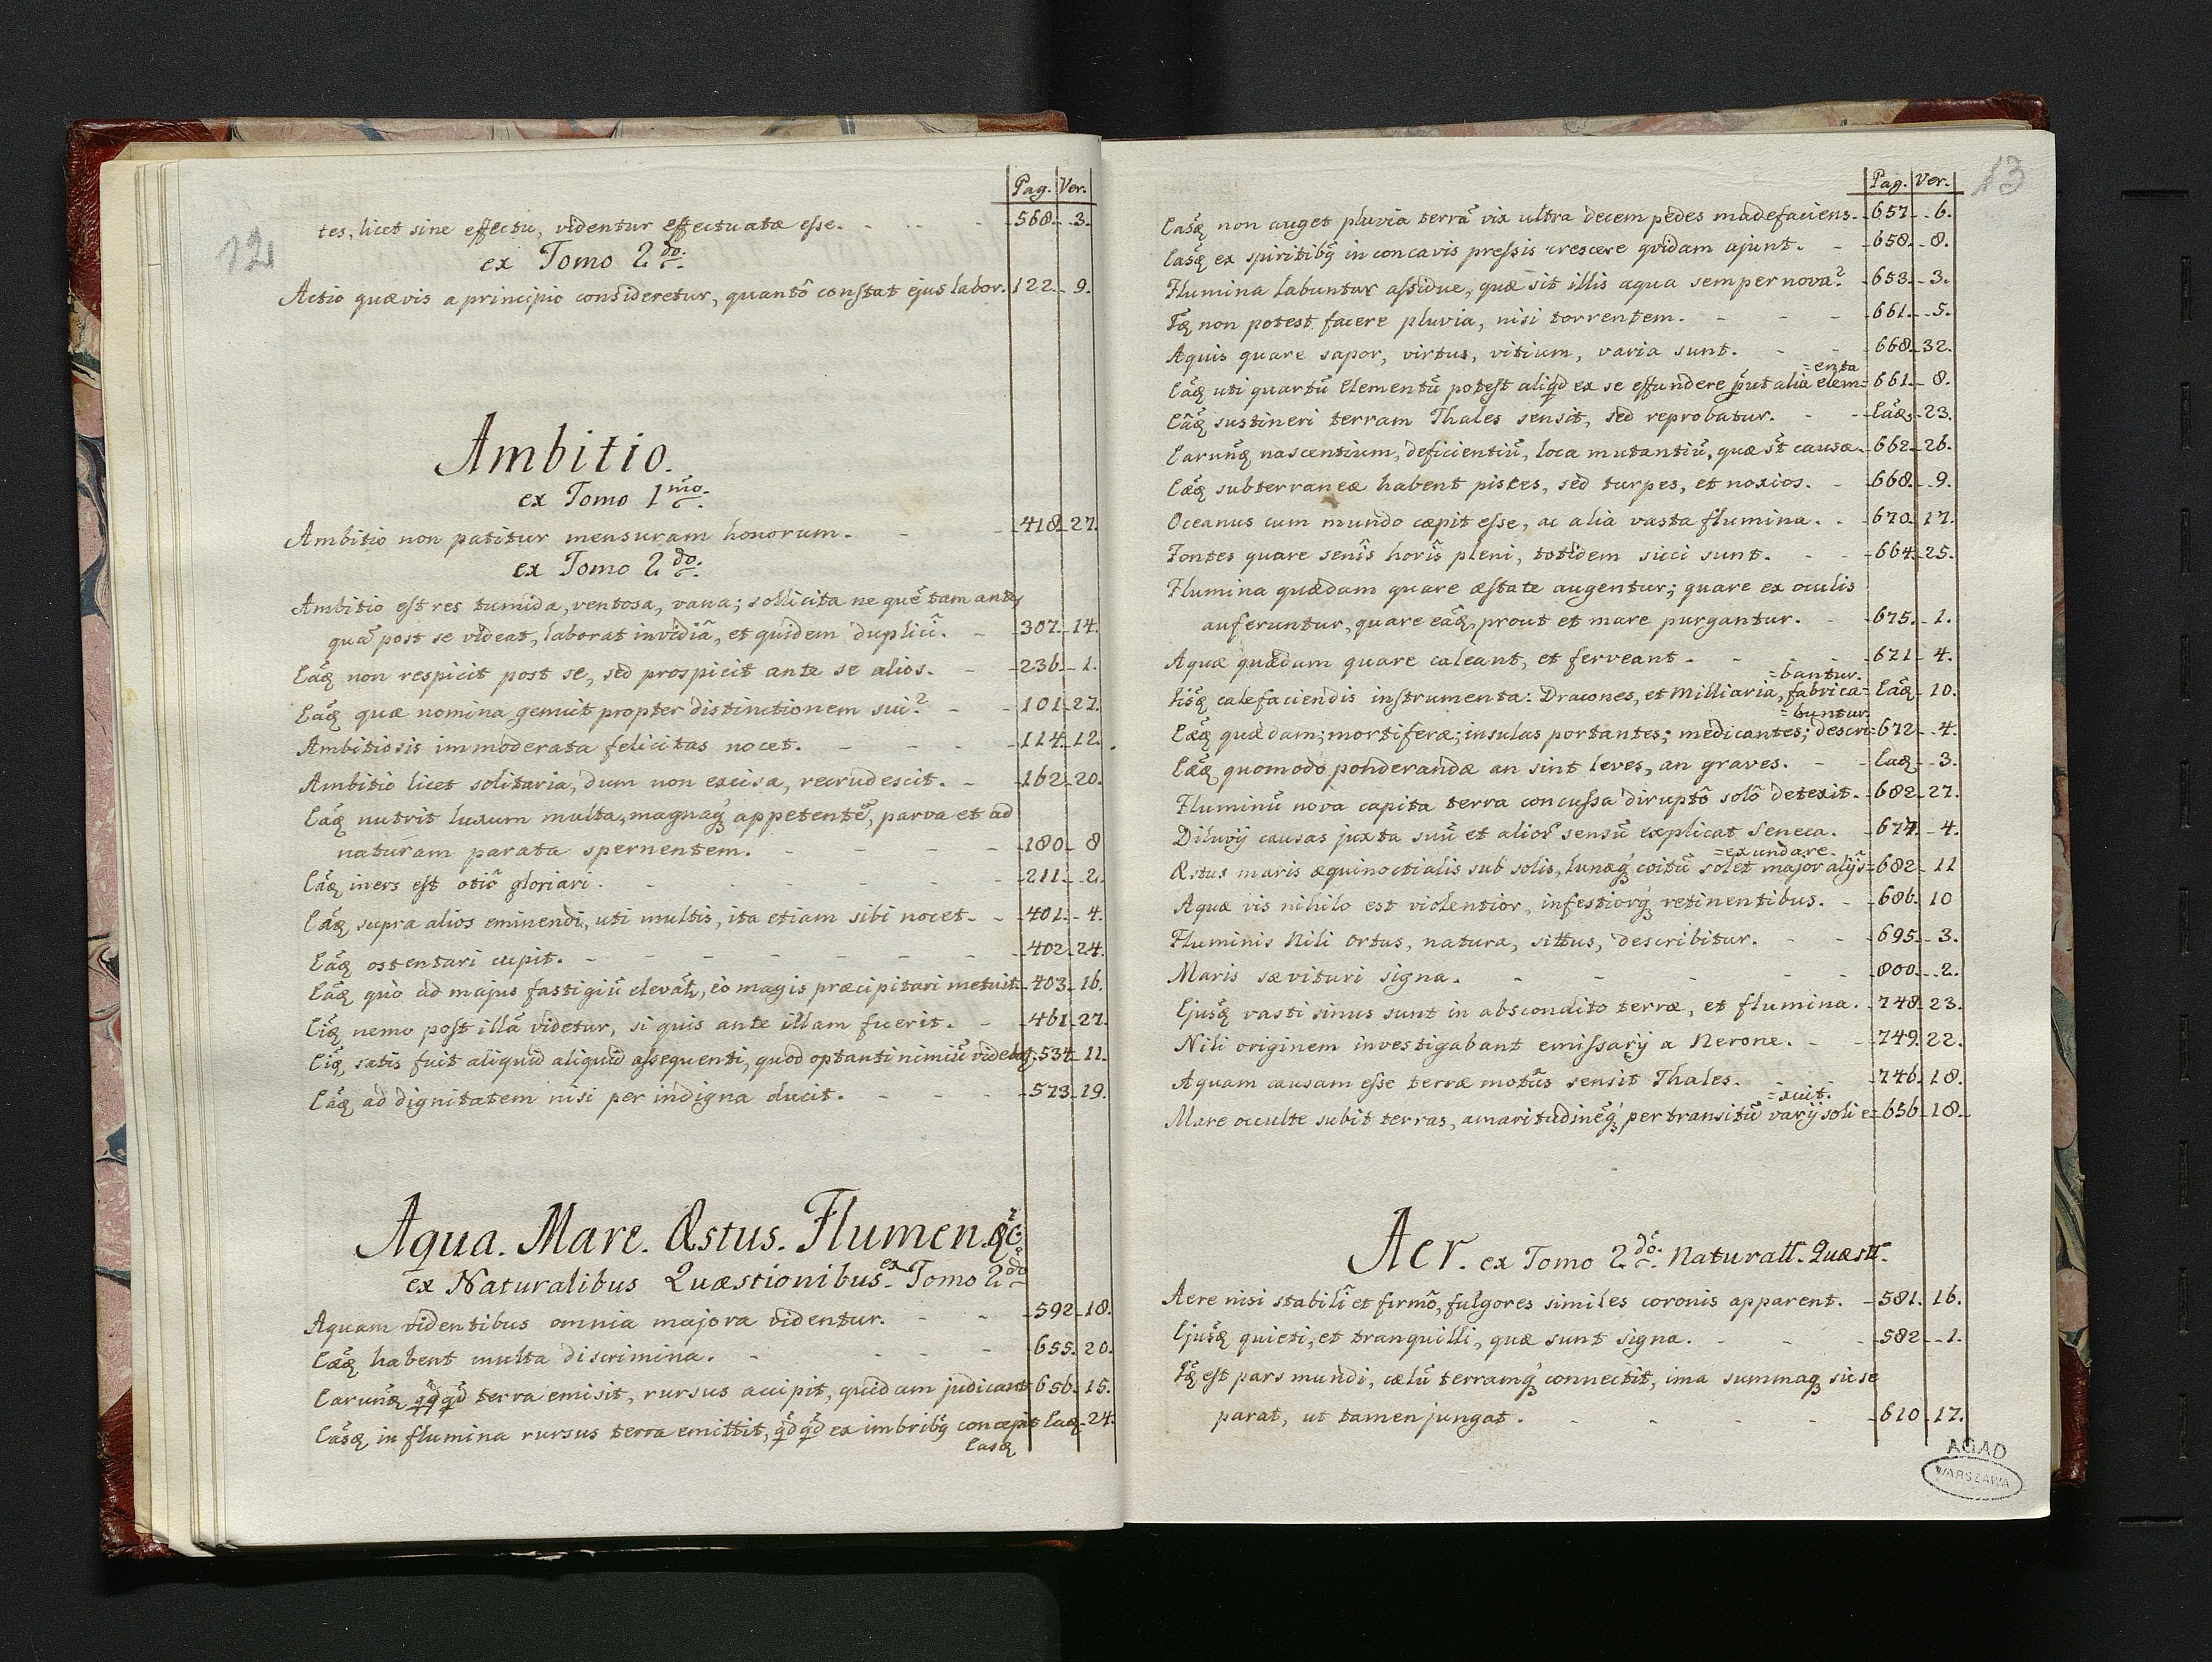 12
Pag. Ver.
tes, licet sine effectu, videntur effectuatæ esse. 568. 3.
ex Tomo 2do.
Actio quævis a principio consideretur, quantô constat ejus labor. 122. 9.
Ambitio.
ex Tomo 1mo.
Ambitio non patitur mensuram honorum. 418. 27.
ex Tomo 2do.
Ambitio est res tumida, ventosa, vana; sollicita ne quē tam ante,
quā post se videat, laborat invidiâ, et quidem duplici. 307. 14.
Eaq non respicit post se, sed prospicit ante se alios. 236. 1.
Eaq quæ nomina genuit propter distinctionem sui? 101. 27.
Ambitiosis immoderata felicitas nocet. 114. 12.
Ambitio licet solitaria, dum non excisa, recrudescit. 162. 20.
Eaq nutrit luxum multa, magnaq appetentē, parva et ad
naturam parata spernentem. 180. 8
Eaq iners est otiô gloriari. 211. 2.
Eaq supra alios eminendi, uti multis, ita etiam sibi nocet. 401. 4.
Eaq ostentari cupit. 402. 24.
Eaq quò ad majus fastigiū elevat, eò magis præcipitari metuit. 403. 16.
Eiq nemo post illā videtur, si quis ante illam fuerit. 461. 27.
Eiq satis fuit aliquid aliquid assequenti, quod optanti nimiū videbat. 534. 11.
Eaq ad dignitatem nisi per indigna ducit. 573. 19.
Aqua. Mare. Æstus. Flumen. &c.
ex Naturalibus Quæstionibus. ex Tomo 2do
Aquam videntibus omnia majora videntur. 592. 18.
Eæq habent multa discrimina. 655. 20.
Earunq qdqd terra emisit, rursus accipit, quidam judicant. 656. 15.
Easq in flumina rursus terra emittit, qdqd ex imbribq concepit Eaq. 24.
Easq
13
Pag. Ver.
Easq non auget pluvia terrā vix ultra decem pedes madefaciens. 657. 6.
Easq ex spiritibq in concavis pressis crescere qvidam ajunt. 658. 8.
Flumina labuntur assidue, quæ sit illis aqua semper nova? 653. 3.
Iq non potest facere pluvia, nisi torrentem. 661. 5.
Aquis quare sapor, virtus, vitium, varia sunt. 668. 32.
=enta
Eaq uti quartū Elementū potest aliqd ex se effundere put alia elem= 661. 8.
Eâq sustineri terram Thales sensit, sed reprobatur. Eaq. 23.
Earunq nascentium, deficientiū, loca mutantiū, quæ st causæ. 662. 26.
Eæq subterraneæ habent pisces, sed turpes, et noxios. 668. 9.
Oceanus cum mundo cœpit esse, ac alia vasta flumina. 670. 17.
Fontes quare senis horis pleni, totidem sicci sunt. 664. 25.
Flumina quædam quare æstate augentur; quare ex oculis
auferuntur, quare eaq, prout et mare purgantur. 675. 1.
Aquæ quædam quare caleant, et ferveant. 671. 4.
=bantur.
Iisq calefaciendis instrumenta: Dracones, et Milliaria, fabrica= Eaq. 10.
=buntur.
Eæq quædam; mortiferæ; insulas portantes; medicantes; descri= 672. 4.
Eæq quomodo ponderandæ an sint leves, an graves. Eaq. 3.
Fluminū nova capita terra concussa diruptô solô detexit. 682. 27.
Diluvij causas juxta suū et alior sensū explicat Seneca. 677. 4.
=exundare.
Æstus maris æquinoctialis sub solis, lunæq coitū solet major alijs= 682. 11
Aquæ vis nihilo est violentior, infestiorq retinentibus. 686. 10
Fluminis Nili ortus, natura, sittus, describitur. 695. 3.
Maris sævituri signa. 800. 2.
Ejusq vasti sinus sunt in abscondito terræ, et flumina. 748. 23.
Nili originem investigabant emissarij a Nerone. 749. 22.
Aquam causam esse terræ motûs sensit Thales. 746. 18.
=xuit.
Mare occulte subit terras, amaritudinēq per transitū varij soli e= 656. 18.
Aer. ex Tomo 2do. Naturall. Quæstt.
Aere nisi stabili et firmô, fulgores similes coronis apparent. 581. 16.
Ejusq quieti, et tranquilli, quæ sunt signa. 582. 1.
Iq est pars mundi, cælū terramq connectit, ima summaq sic se
parat, ut tamen jungat. 610. 17.
AGAD
WARSZAWA